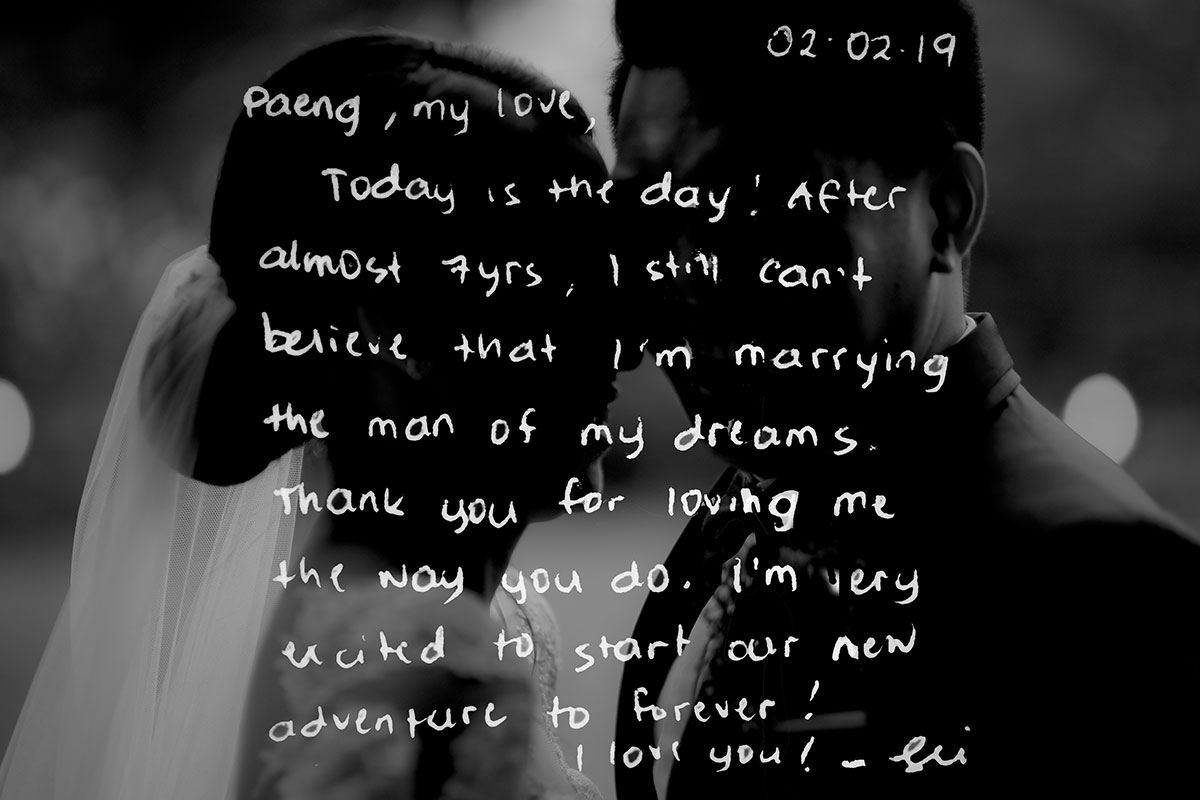 02·02·19
Paeng, my love,
Today is the day! After
almost 7yrs, I still can't
believe that I'm marrying
the man of my dreams.
Thank you for loving me
the way you do. I'm very
excited to start our new
adventure to forever!
I love you! -